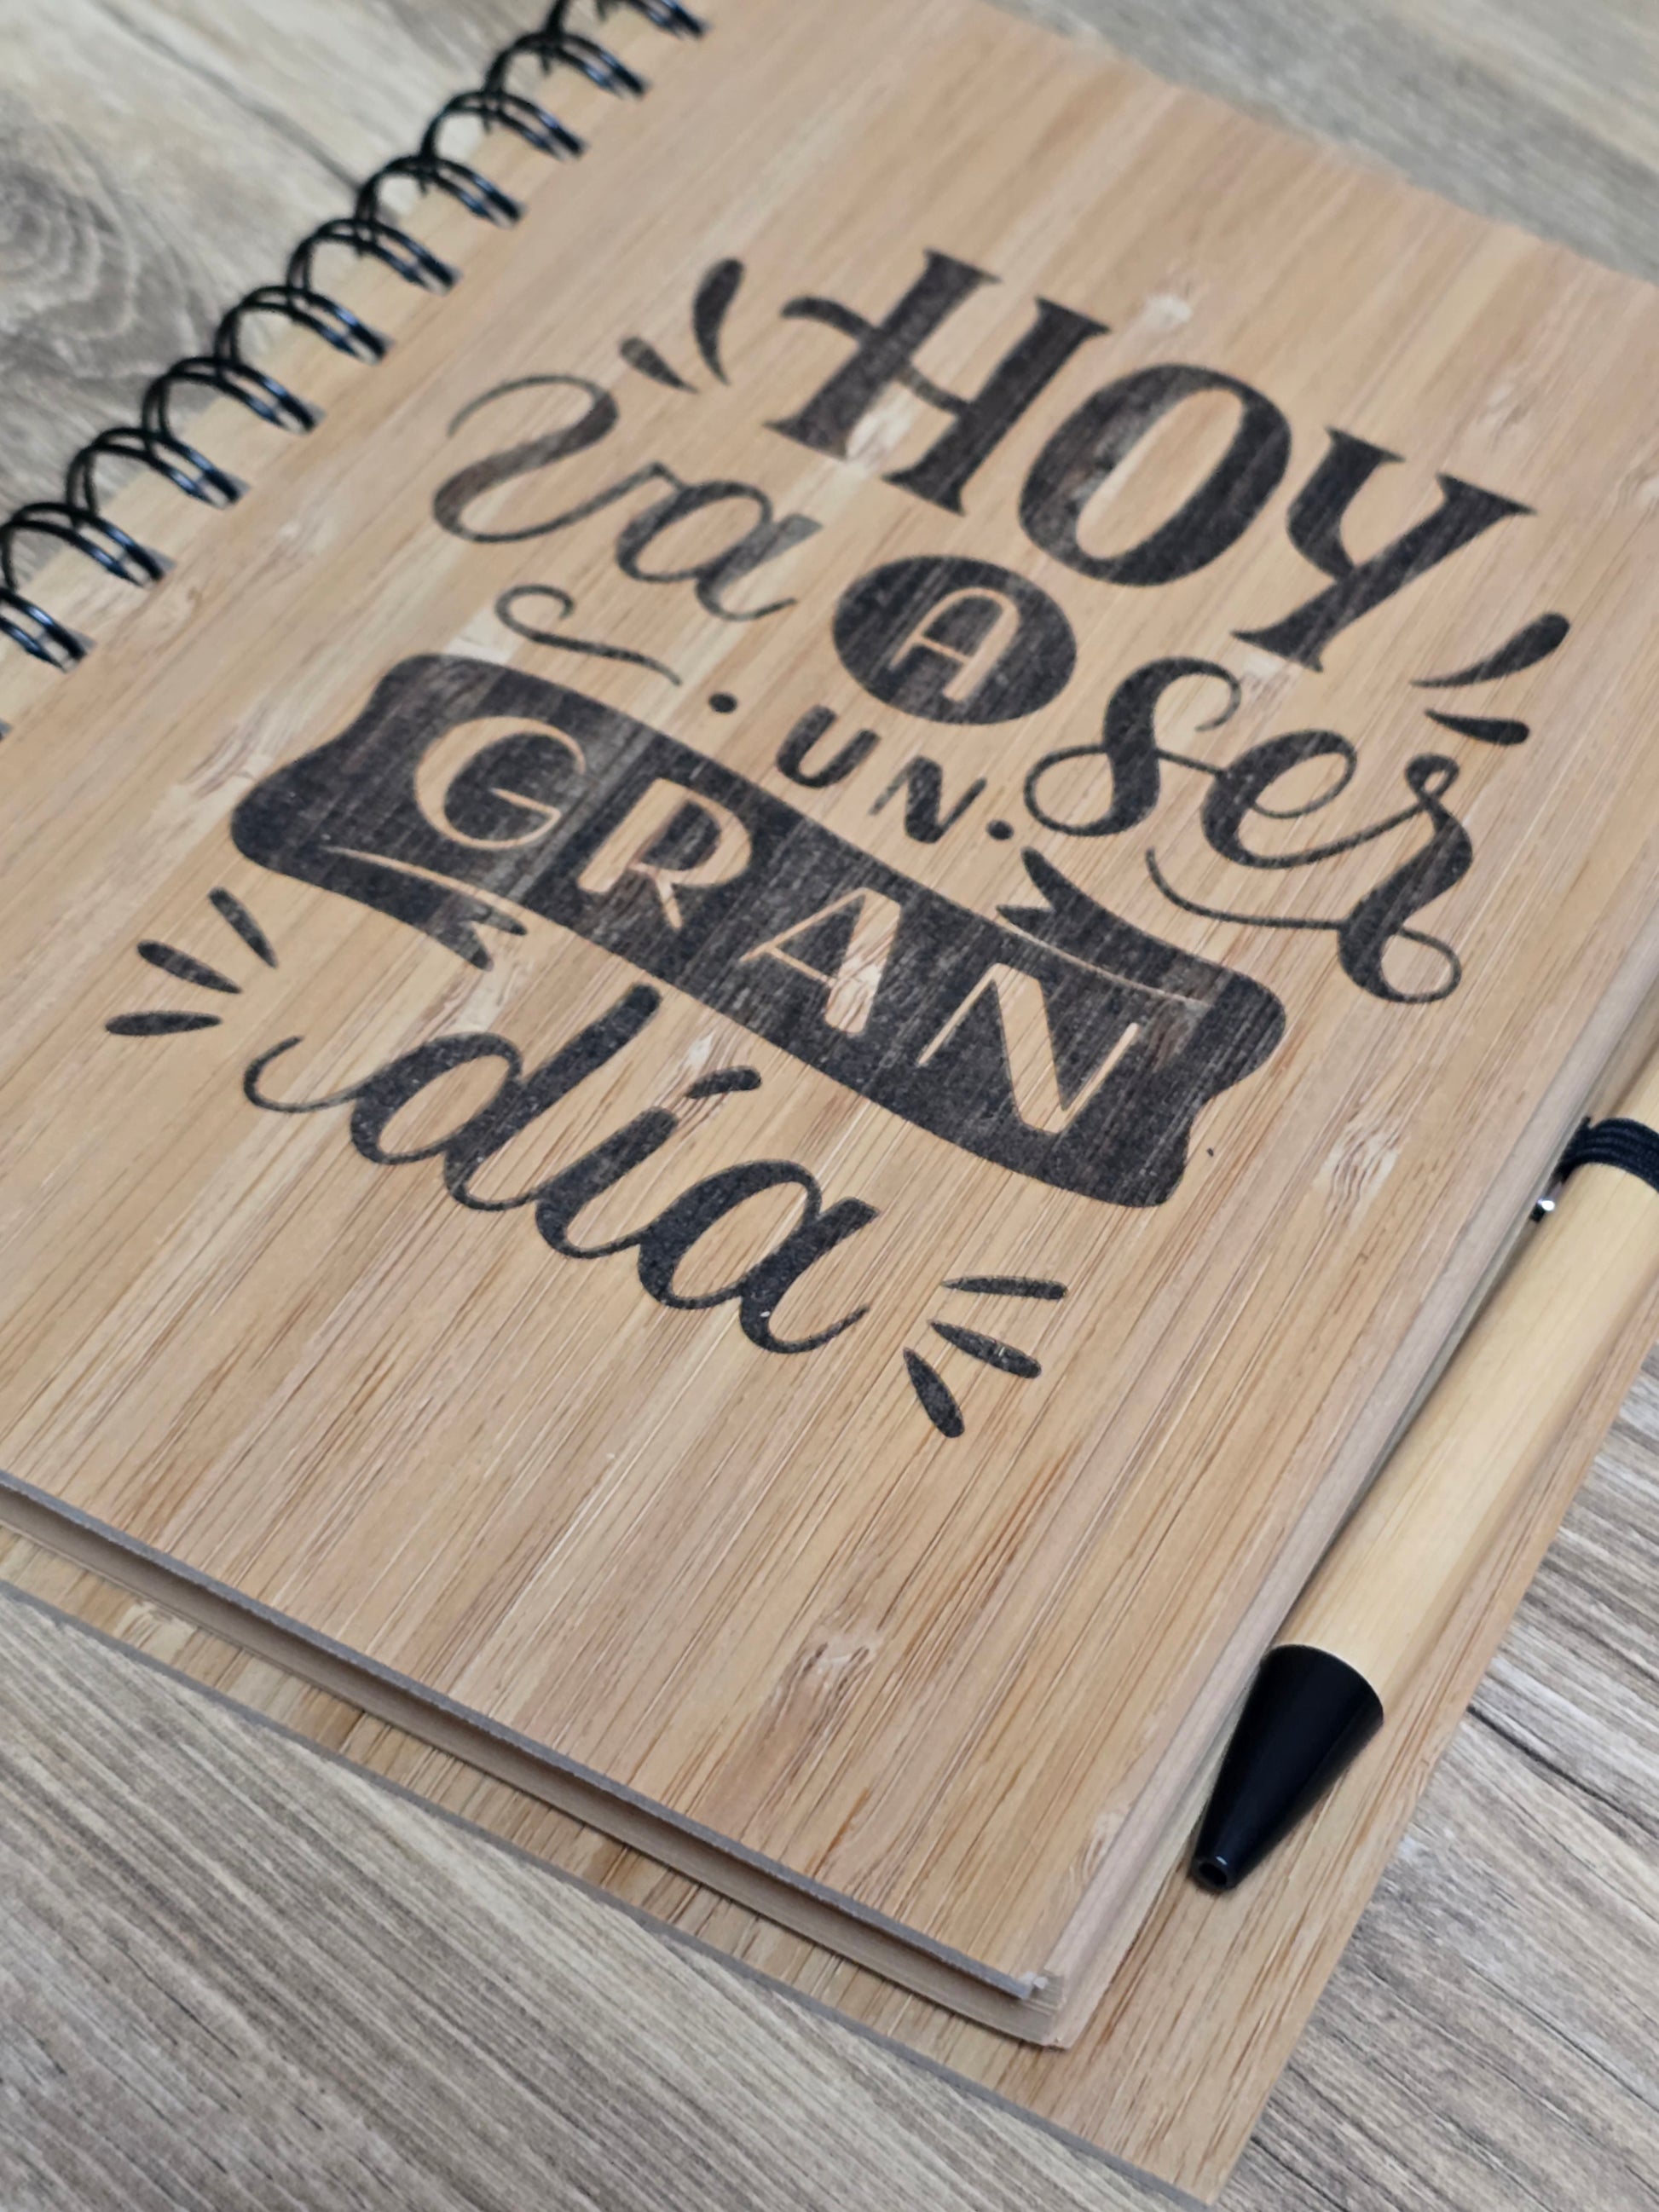 HOY
va A ser
· UN ·
GRAN
día